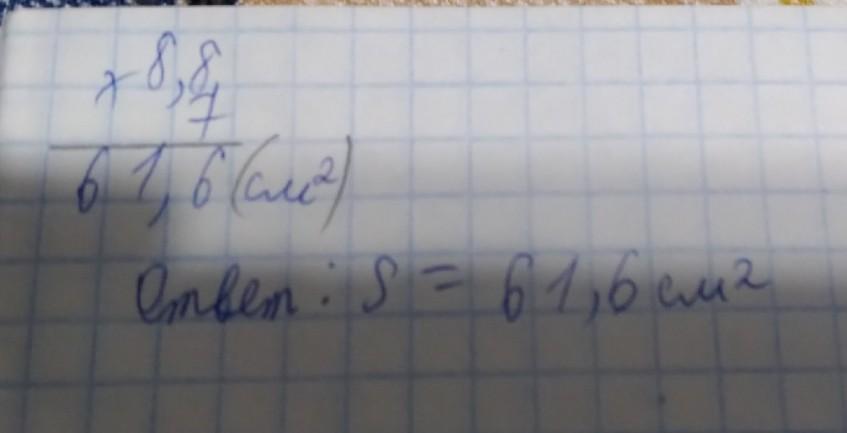 × 8,8
7
61,6 (см²)
Ответ: S = 61,6 см²